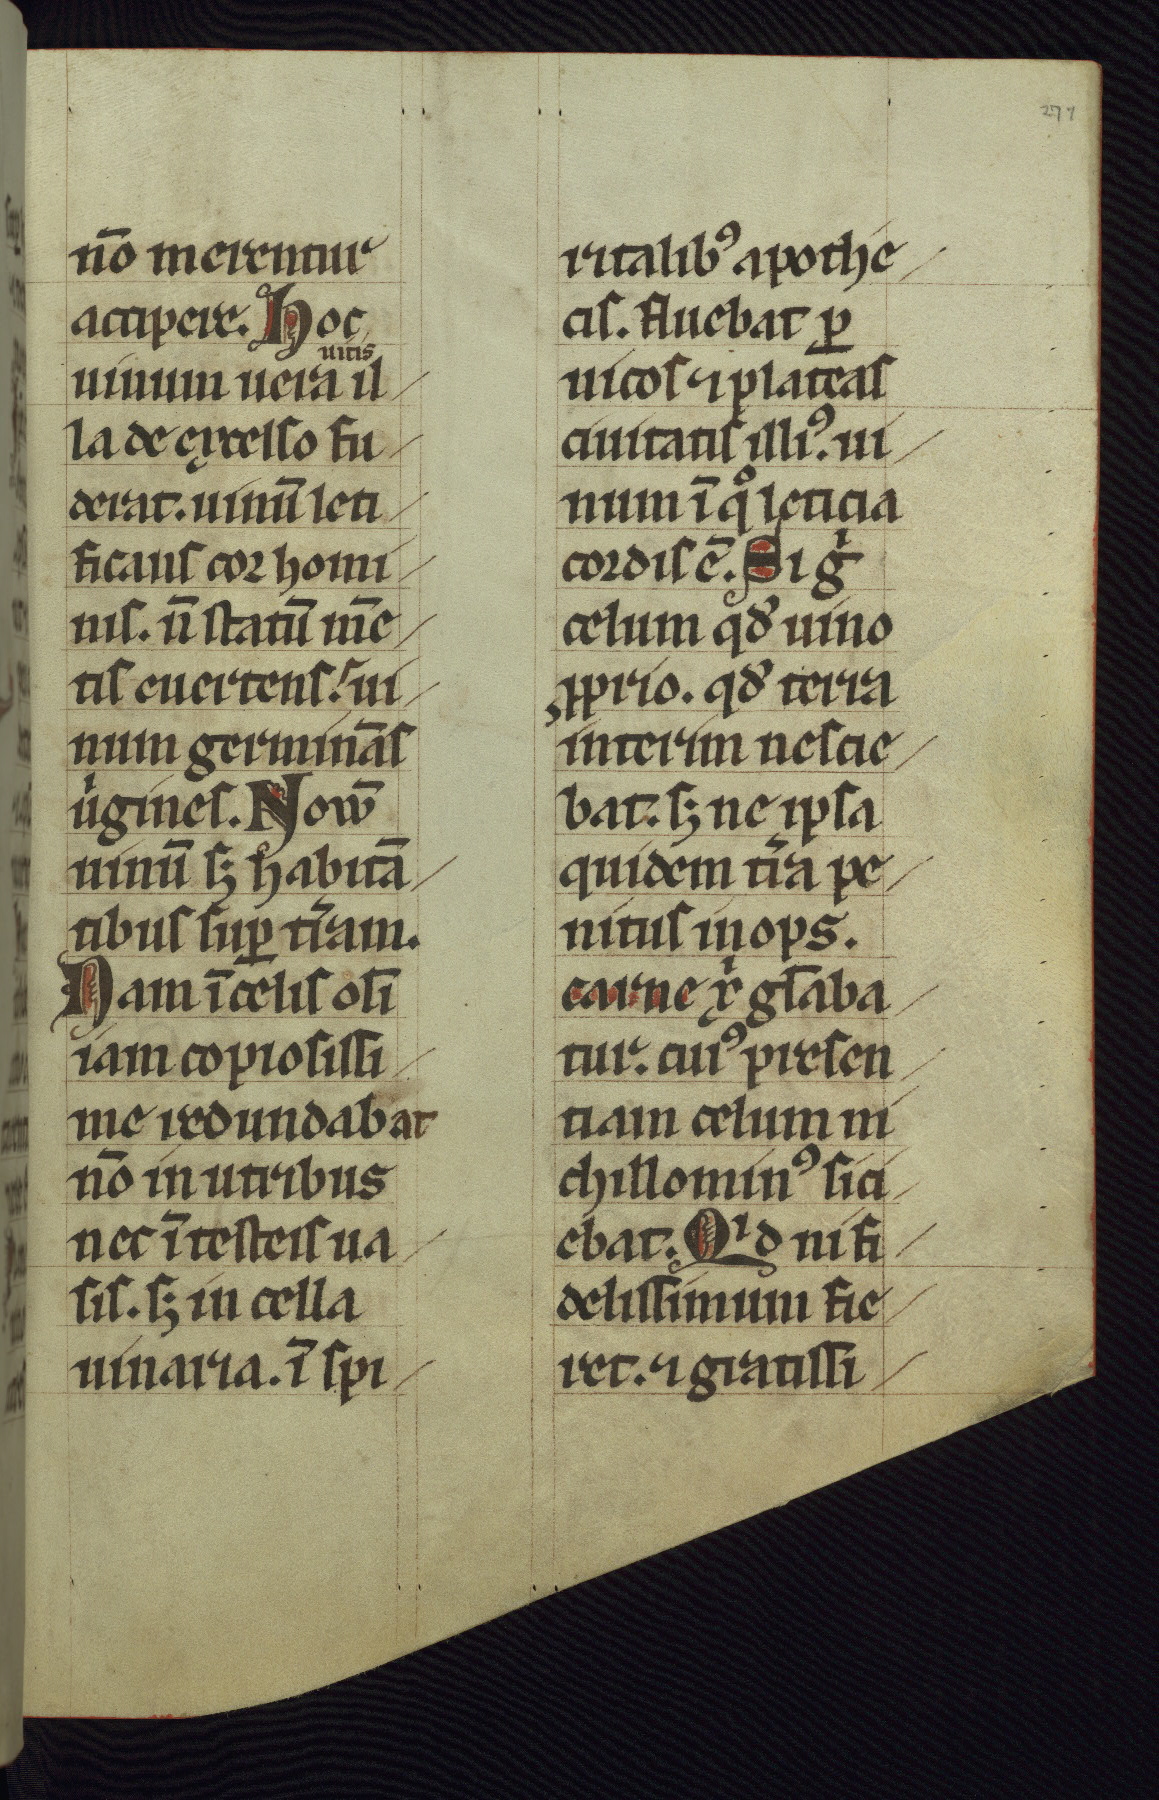 277
nō merentur
accipere. Hoc
uitis
uinum uera il
la de excelso fu
derat. uinū leti
ficans cor homi
nis. ñ statū mē
tis euertens. s; ui
num germinās
uͥgines. Nouū
uinū s; habitā
tibus suꝑ tr̄am.
Nam ī celis oli̅
iam copiosissi
me redundabat
nō in utribus
nec ī testeis ua
sis. s; in cella
uinaria. ī spi
ritalibꝰ apothe
cis. fluebat ꝑ
uicos ⁊ plateas
ciuitatis illiꝰ. ui
num ī qͦ leticia
cordis ē. Si gͥ
celum qd̕ uino
ꝓprio. qd̕ terra
interim nescie
bat. s; ne ipsa
quidem tr̄a pe
nitus inops.
carne xͥ gl̄aba
tur. cuiꝰ presen
tiam celum ni
chillominꝰ sici
ebat. Qͥd ni fi
delissimum fie
ret. ⁊ gratissi